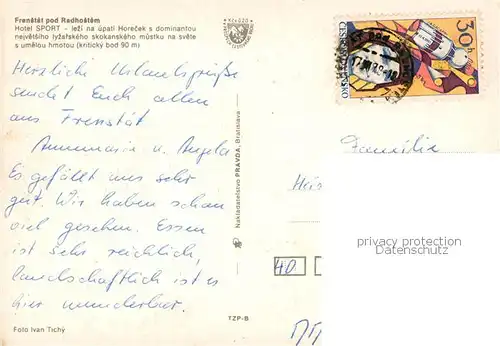 Frenštát pod Radhoštěm
Hotel SPORT - leží na úpatí Horeček s dominantou
největšího lyžařského skokanského můstku na světe
s umělou hmotou (kritický bod 90 m)
Herzliche Urlaubsgrüße
sendet Euch allen
aus Frenstát
Annemarie u. Angela
Es gefällt uns sehr
gut. Wir haben schon
viel gesehen. Essen
ist sehr reichlich,
landschaftlich ist es
hier wunderbar.
Foto Ivan Tichý
TZP-B
Nakladatelstvo PRAVDA, Bratislava
30h
ČESKOSLOVENSKO
Familie
privacy protection
Datenschutz
40